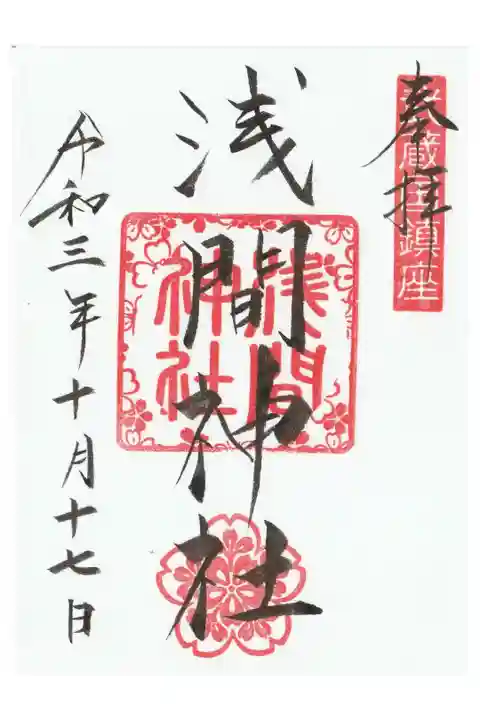 奉拝
武蔵国鎮座
浅間神社
浅間神社
令和三年十月十七日